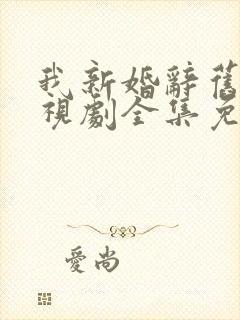 我新婚辭舊
視劇全集免
愛尚